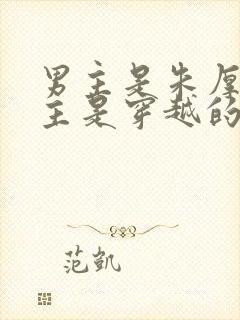 男主是朱厚
主是穿越的
范凯